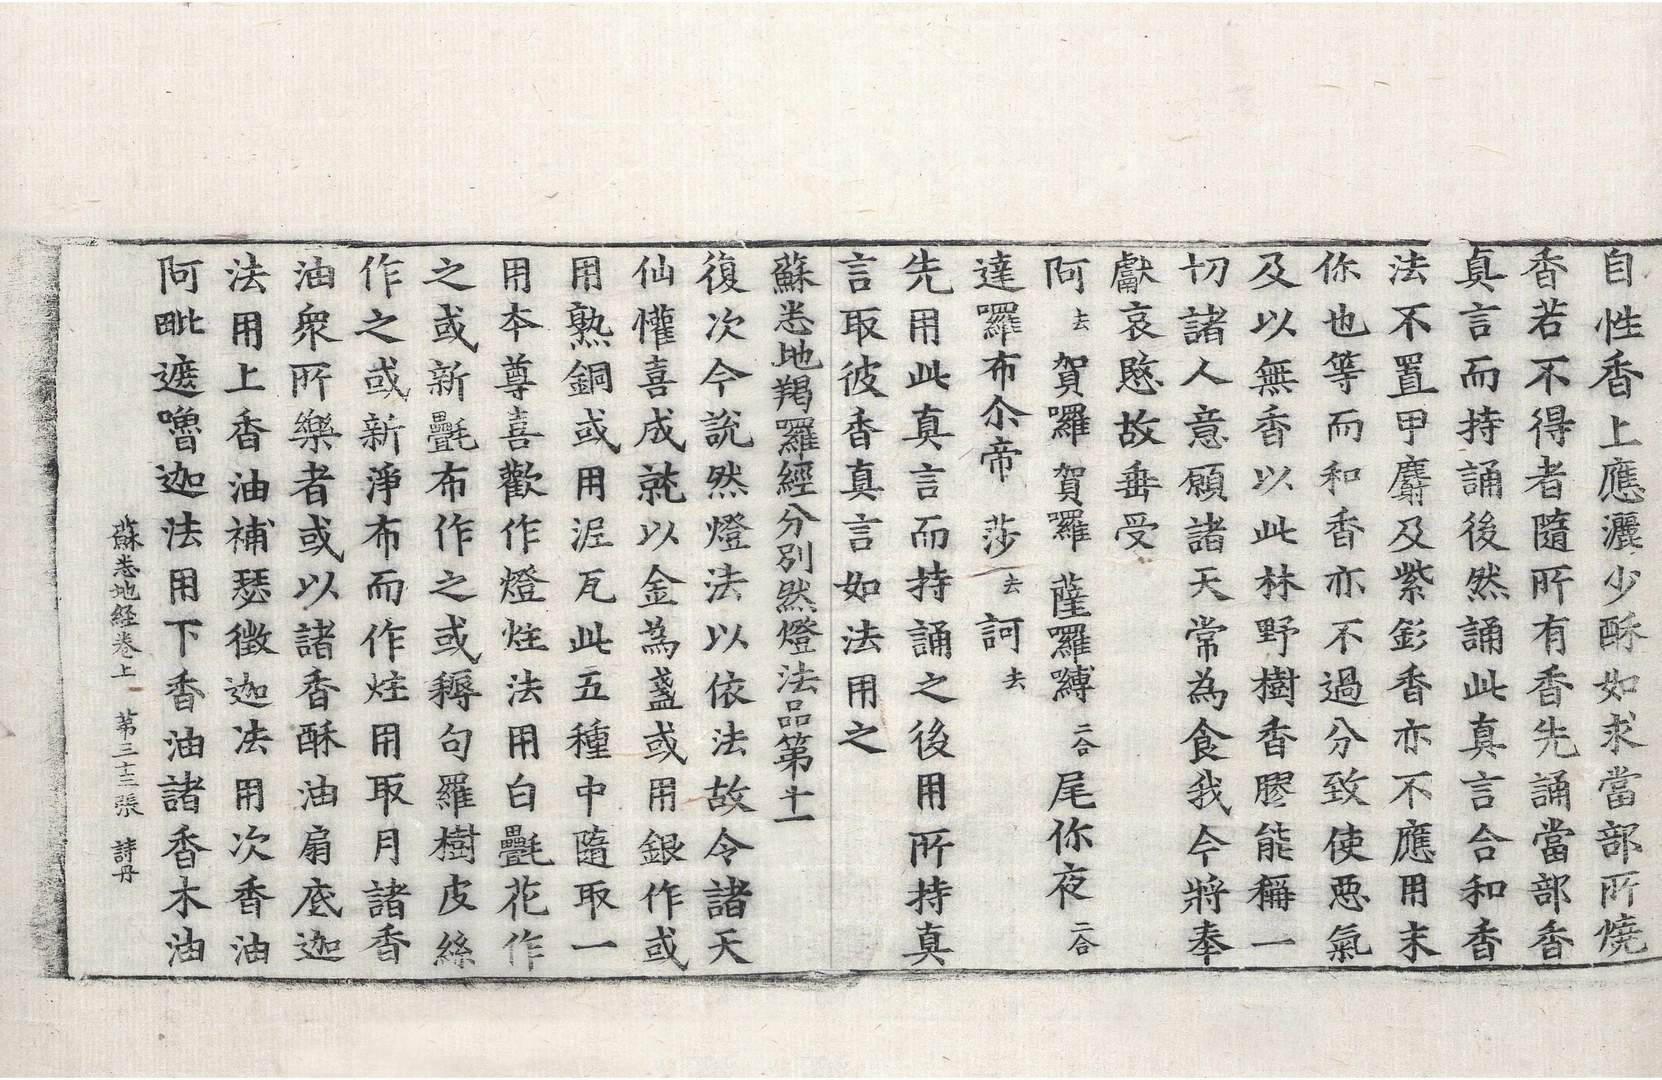 自性香上應灑少酥如求當部所燒
香若不得者隨所有香先誦當部香
真言而持誦後然誦此真言合和香
法不置甲麝及紫鉚香亦不應用末
你也等而和香亦不過分致使惡氣
及以無香以此林野樹香膠能稱一
切諸人意願諸天常為食我今將奉
獻哀愍故垂受
阿去賀囉賀囉薩囉囉縛二合尾你夜二合
達囉布尒帝莎去訶去
先用此真言而持誦之後用所持真
言取彼香真言如法用之
蘇悉地羯囉經分別然燈法品第十一
復次今說然燈法以依法故令諸天
仙懽喜成就以金為盞或用銀作或
用熟銅或用泥瓦此五種中隨取一
用本尊喜歡作燈炷法用白㲲花作
之或新㲲布作之或耨句羅樹皮絲
作之或新淨布而作炷用取月諸香
油眾所樂者或以諸香酥油扇底迦
法用上香油補瑟徵迦法用次香油
阿毗遮嚕迦法用下香油諸香木油
蘇悉地経卷上 苐三十三張 詩丹